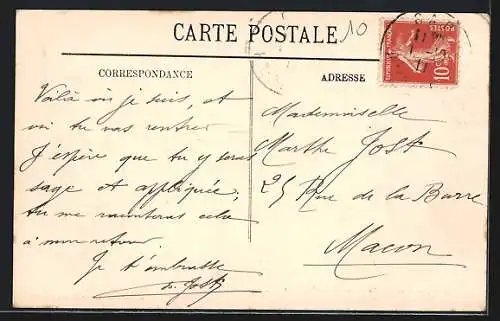 CARTE POSTALE
10
CORRESPONDANCE
ADRESSE
POSTES
10c
Voilà où je suis, et
où tu vas rentrer
J'espère que tu y seras
sage et appliquée,
tu me raconteras cela
à mon retour.
Je t'embrasse
Jost
Mademoiselle
Marthe Jost
25 Rue de la Barre
Macon